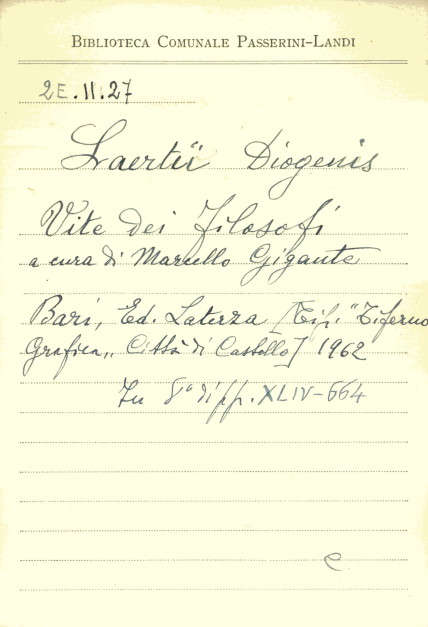 BIBLIOTECA COMUNALE PASSERINI-LANDI
2E.II.27
Laertii Diogenis
Vite dei filosofi
a cura di Marcello Gigante
Bari, Ed. Laterza [Tip. "Tiferno
Grafica„ Città di Castello] 1962
In 8° di pp. XLIV-664
C